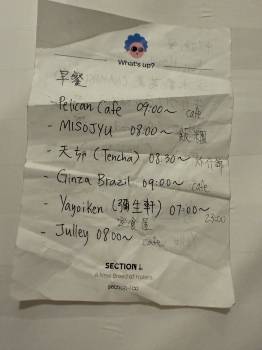 What's up?
早餐
- Pelican Cafe 09:00~ cafe
- MISOJYU 08:00~ 飯糰
- (Tencha) 08:30~
- Ginza Brazil 09:00~ cafe
- Yayoiken (彌生軒) 07:00~
23:00
定食屋
- Julley 08:00~ cafe
SECTION L
A New Breed of Hotels